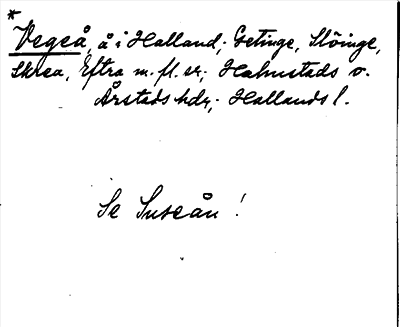 *
Vegeå, å i Halland; Getinge, Slöinge,
Skrea, Eftra m. fl. sr; Halmstads o.
Årstads hdr; Hallands l.
Se Suseån!